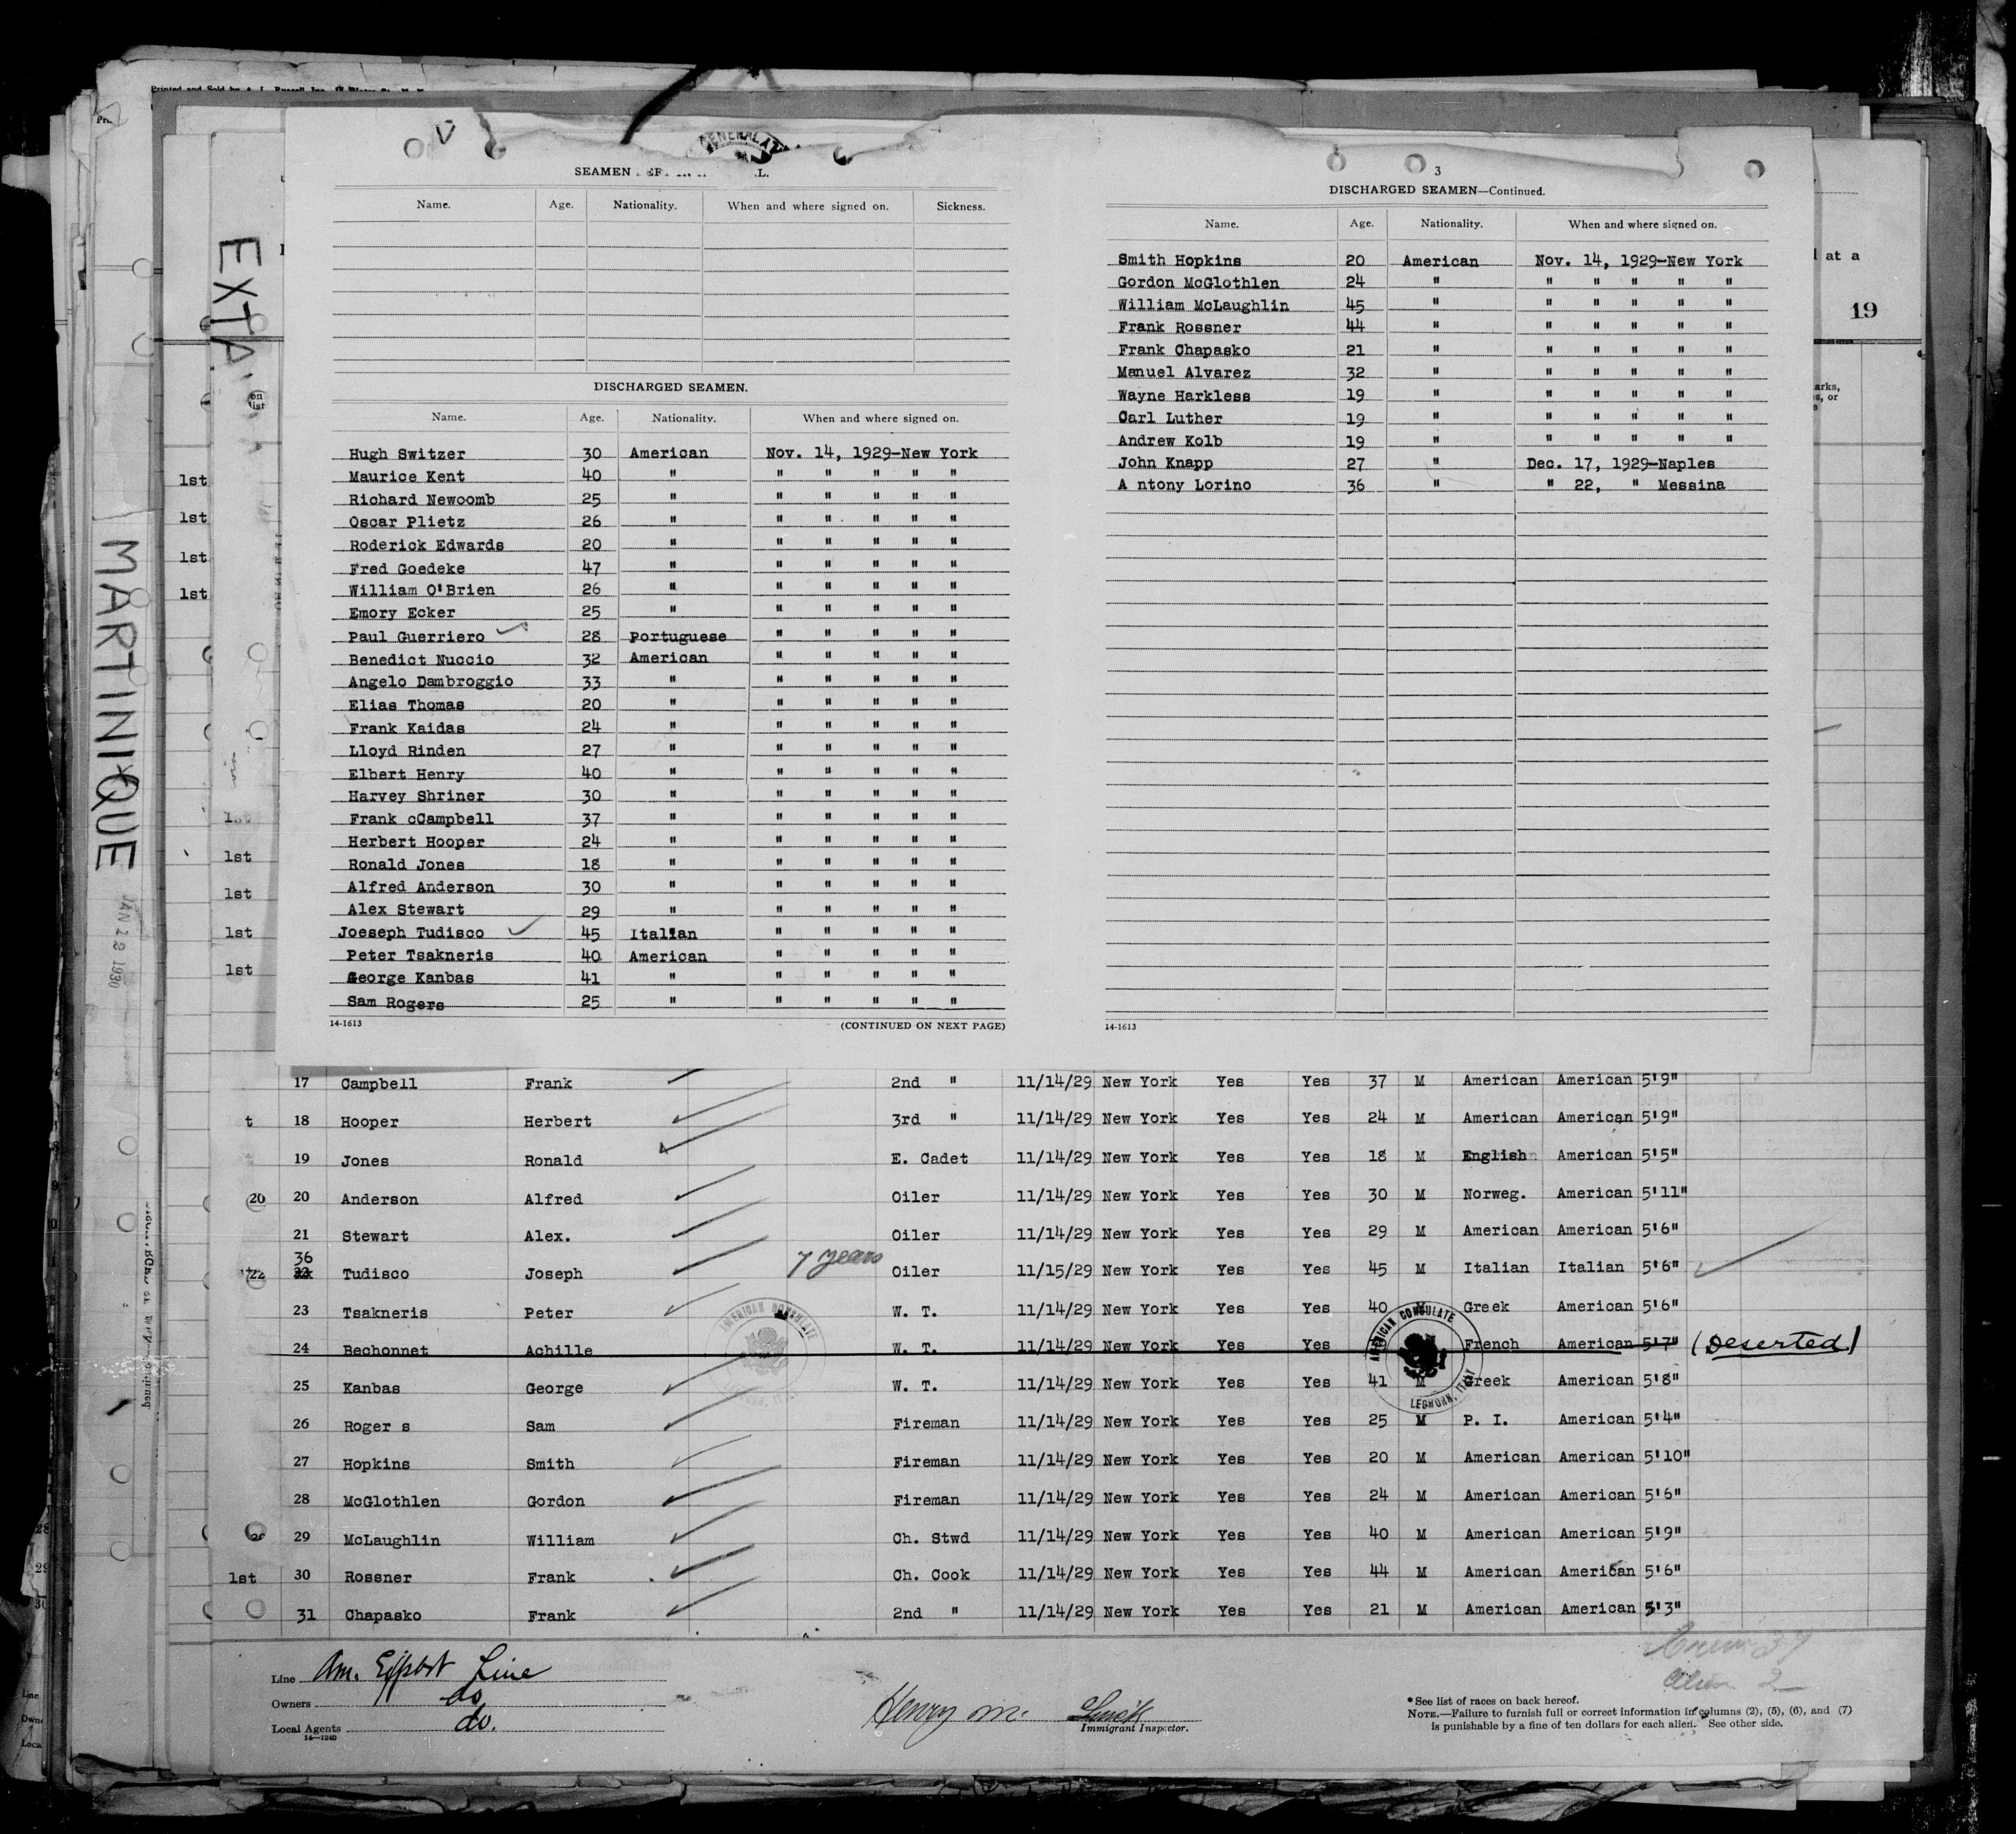 Printed and Sold by
GENERAL
SEAMEN
Name. Age. Nationality. When and where signed on. Sickness.
DISCHARGED SEAMEN.
Name. Age. Nationality. When and where signed on.
Hugh Switzer 30 American Nov. 14, 1929-New York
Maurice Kent 40 " " " " " "
Richard Newcomb 25 " " " " " "
Oscar Plietz 26 " " " " " "
Roderick Edwards 20 " " " " " "
Fred Goedeke 47 " " " " " "
William O'Brien 26 " " " " " "
Emory Ecker 25 " " " " " "
Paul Guerriero 28 Portuguese " " " " "
Benedict Nuccio 32 American " " " " "
Angelo Dambroggio 33 " " " " " "
Elias Thomas 20 " " " " " "
Frank Kaidas 24 " " " " " "
Lloyd Rinden 27 " " " " " "
Elbert Henry 40 " " " " " "
Harvey Shriner 30 " " " " " "
Frank cCampbell 37 " " " " " "
Herbert Hooper 24 " " " " " "
Ronald Jones 18 " " " " " "
Alfred Anderson 30 " " " " " "
Alex Stewart 29 " " " " " "
Joeseph Tudisco 45 Italian " " " " "
Peter Tsakneris 40 American " " " " "
George Kanbas 41 " " " " " "
Sam Rogers 25 " " " " " "
14-1613 (CONTINUED ON NEXT PAGE)
3
DISCHARGED SEAMEN—Continued.
Name. Age. Nationality. When and where signed on.
Smith Hopkins 20 American Nov. 14, 1929-New York
Gordon McGlothlen 24 " " " " " "
William McLaughlin 45 " " " " " "
Frank Rossner 44 " " " " " "
Frank Chapasko 21 " " " " " "
Manuel Alvarez 32 " " " " " "
Wayne Harkless 19 " " " " " "
Carl Luther 19 " " " " " "
Andrew Kolb 19 " " " " " "
John Knapp 27 " Dec. 17, 1929-Naples
A ntony Lorino 36 " " 22, " Messina
14-1613
at a
19
MARTINIQUE
JAN 12 1930
1st
1st
1st
1st
1st
1st
1st
1st
1st
17 Campbell Frank 2nd " 11/14/29 New York Yes Yes 37 M American American 5'9"
18 Hooper Herbert 3rd " 11/14/29 New York Yes Yes 24 M American American 5'9"
19 Jones Ronald E. Cadet 11/14/29 New York Yes Yes 18 M English American 5'5"
20 20 Anderson Alfred Oiler 11/14/29 New York Yes Yes 30 M Norweg. American 5'11"
21 Stewart Alex. Oiler 11/14/29 New York Yes Yes 29 M American American 5'6"
36
22 22 Tudisco Joseph 7 years Oiler 11/15/29 New York Yes Yes 45 M Italian Italian 5'6"
23 Tsakneris Peter W. T. 11/14/29 New York Yes Yes 40 M Greek American 5'6"
24 Bechonnet Achille W. T. 11/14/29 New York Yes Yes French American 5'7" (Deserted)
25 Kanbas George W. T. 11/14/29 New York Yes Yes 41 M Greek American 5'8"
26 Roger s Sam Fireman 11/14/29 New York Yes Yes 25 M P. I. American 5'4"
27 Hopkins Smith Fireman 11/14/29 New York Yes Yes 20 M American American 5'10"
28 McGlothlen Gordon Fireman 11/14/29 New York Yes Yes 24 M American American 5'6"
29 McLaughlin William Ch. Stwd 11/14/29 New York Yes Yes 40 M American American 5'9"
1st 30 Rossner Frank Ch. Cook 11/14/29 New York Yes Yes 44 M American American 5'6"
31 Chapasko Frank 2nd " 11/14/29 New York Yes Yes 21 M American American 5'3"
AMERICAN CONSULATE
AMERICAN CONSULATE
LEGHORN, ITALY
Line Am. Export Line
Owners do
Local Agents do.
14—1240
Henry M. Smith
Immigrant Inspector.
Crew 37
Alien 2
* See list of races on back hereof.
NOTE.—Failure to furnish full or correct information in columns (2), (5), (6), and (7)
is punishable by a fine of ten dollars for each alien. See other side.